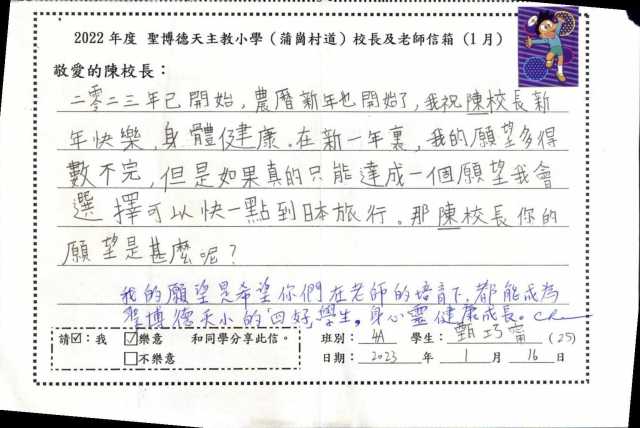 2022 年度 聖博德天主教小學（蒲崗村道）校長及老師信箱（1 月）
敬愛的陳校長：
二零二三年已開始，農曆新年也開始了，我祝陳校長新
年快樂，身體健康。在新一年裏，我的願望多得
數不完，但是如果真的只能達成一個願望我會
選擇可以快一點到日本旅行。那陳校長你的
願望是甚麼呢？
我的願望是希望你們在老師的培育下，都能成為
聖博德天小的"四好"學生，身心靈健康成長。
請☑：我 ☑樂意 和同學分享此信。 班別：4A 學生：甄巧甯 (25)
□不樂意 日期：2023 年 1 月 16 日